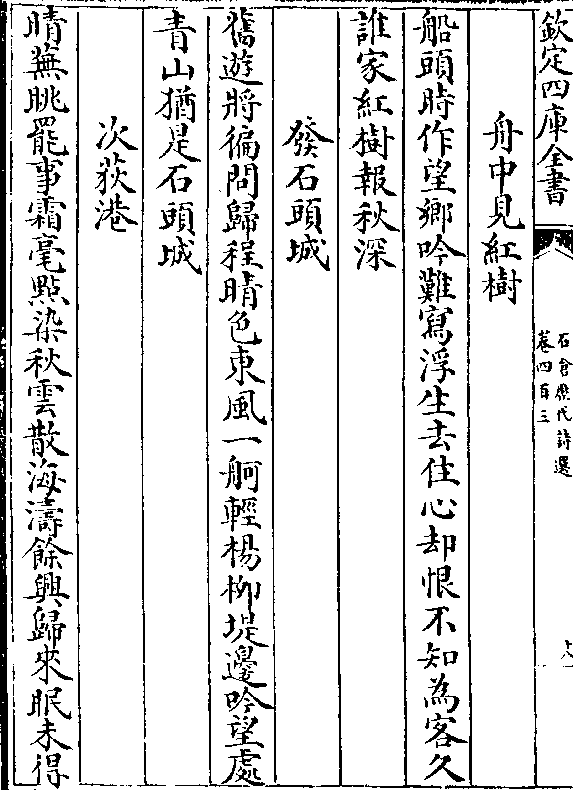 欽定四庫全書
石倉歷代詩選
卷四百三
十八
舟中見紅樹
船頭時作望鄉吟難寫浮生去住心却恨不知為客久
誰家紅樹報秋深
發石頭城
舊遊將徧問歸程晴色東風一舸輕楊柳堤邊吟望處
青山猶是石頭城
次荻港
晴蕪眺罷事霜毫點染秋雲散海濤餘興歸來眠未得